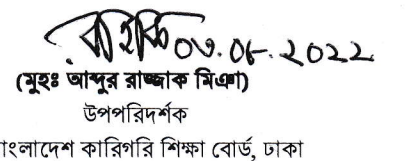 ০৩.০৮.২০২২
(মুহঃ আব্দুর রাজ্জাক মিঞা)
উপপরিদর্শক
াংলাদেশ কারিগরি শিক্ষা বোর্ড, ঢাকা